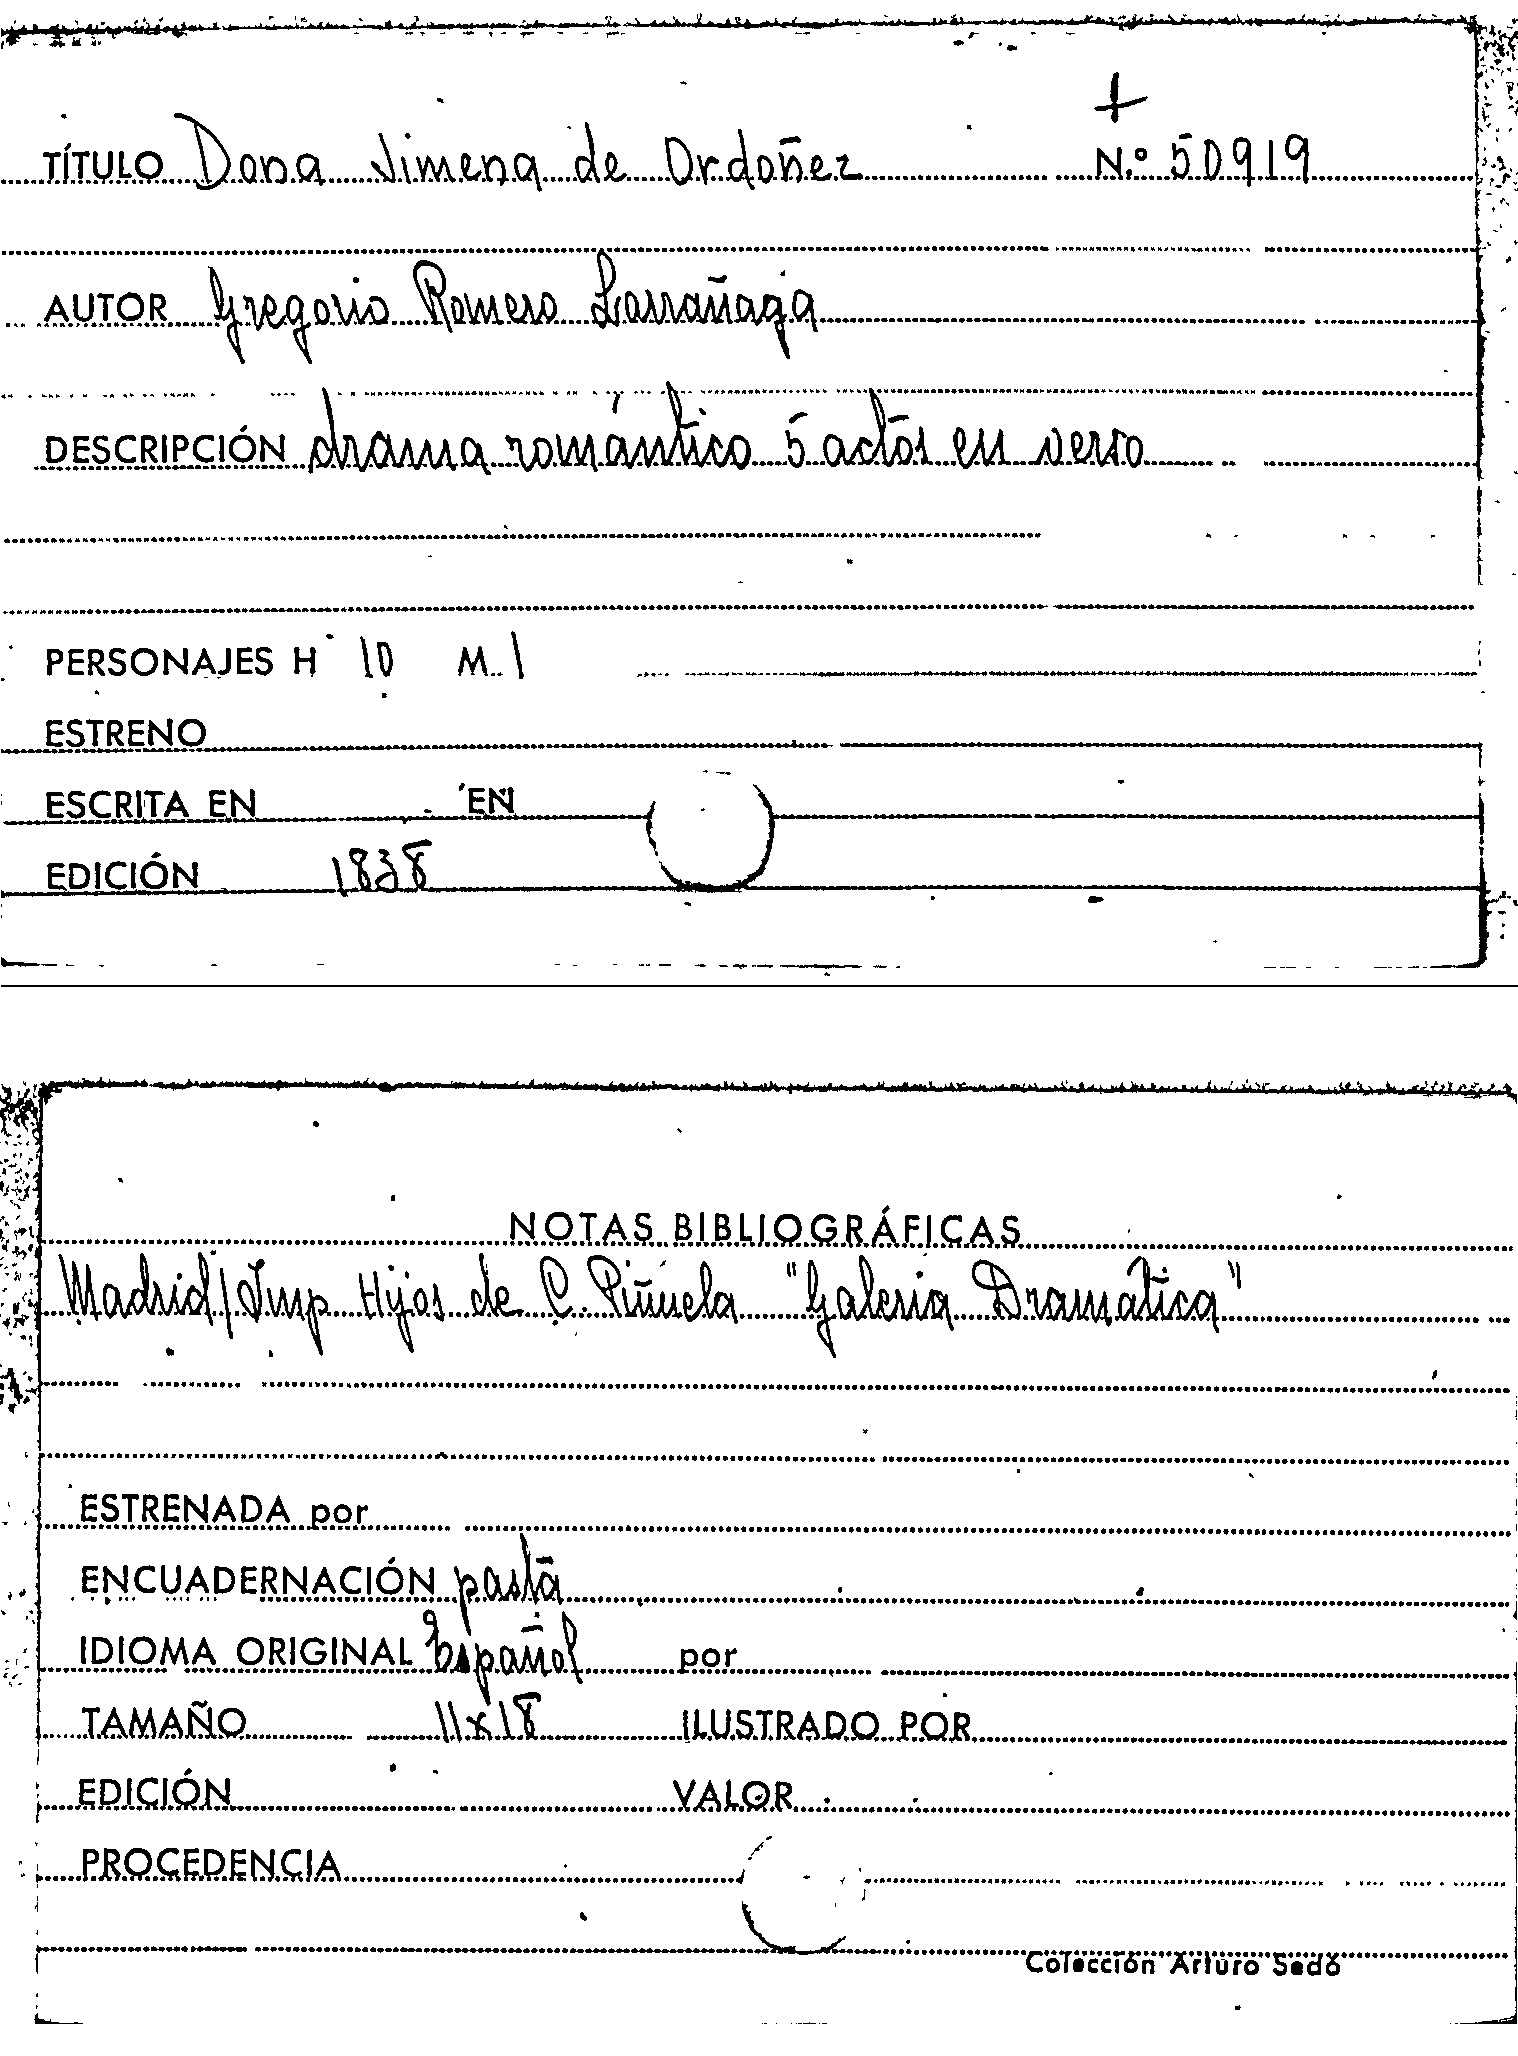 +
TÍTULO Dona Jimena de Ordoñez N.º 50919
AUTOR Gregorio Romero Larrañaga
DESCRIPCIÓN drama romántico 5 actos en verso
PERSONAJES H 10 M. 1
ESTRENO
ESCRITA EN EN
EDICIÓN 1838
NOTAS BIBLIOGRÁFICAS
Madrid/Imp Hijos de C. Piñuela "Galeria Dramatica"
ESTRENADA por
ENCUADERNACIÓN pasta
IDIOMA ORIGINAL Español por
TAMAÑO 11x18 ILUSTRADO POR
EDICIÓN VALOR
PROCEDENCIA
Colección Arturo Sedó